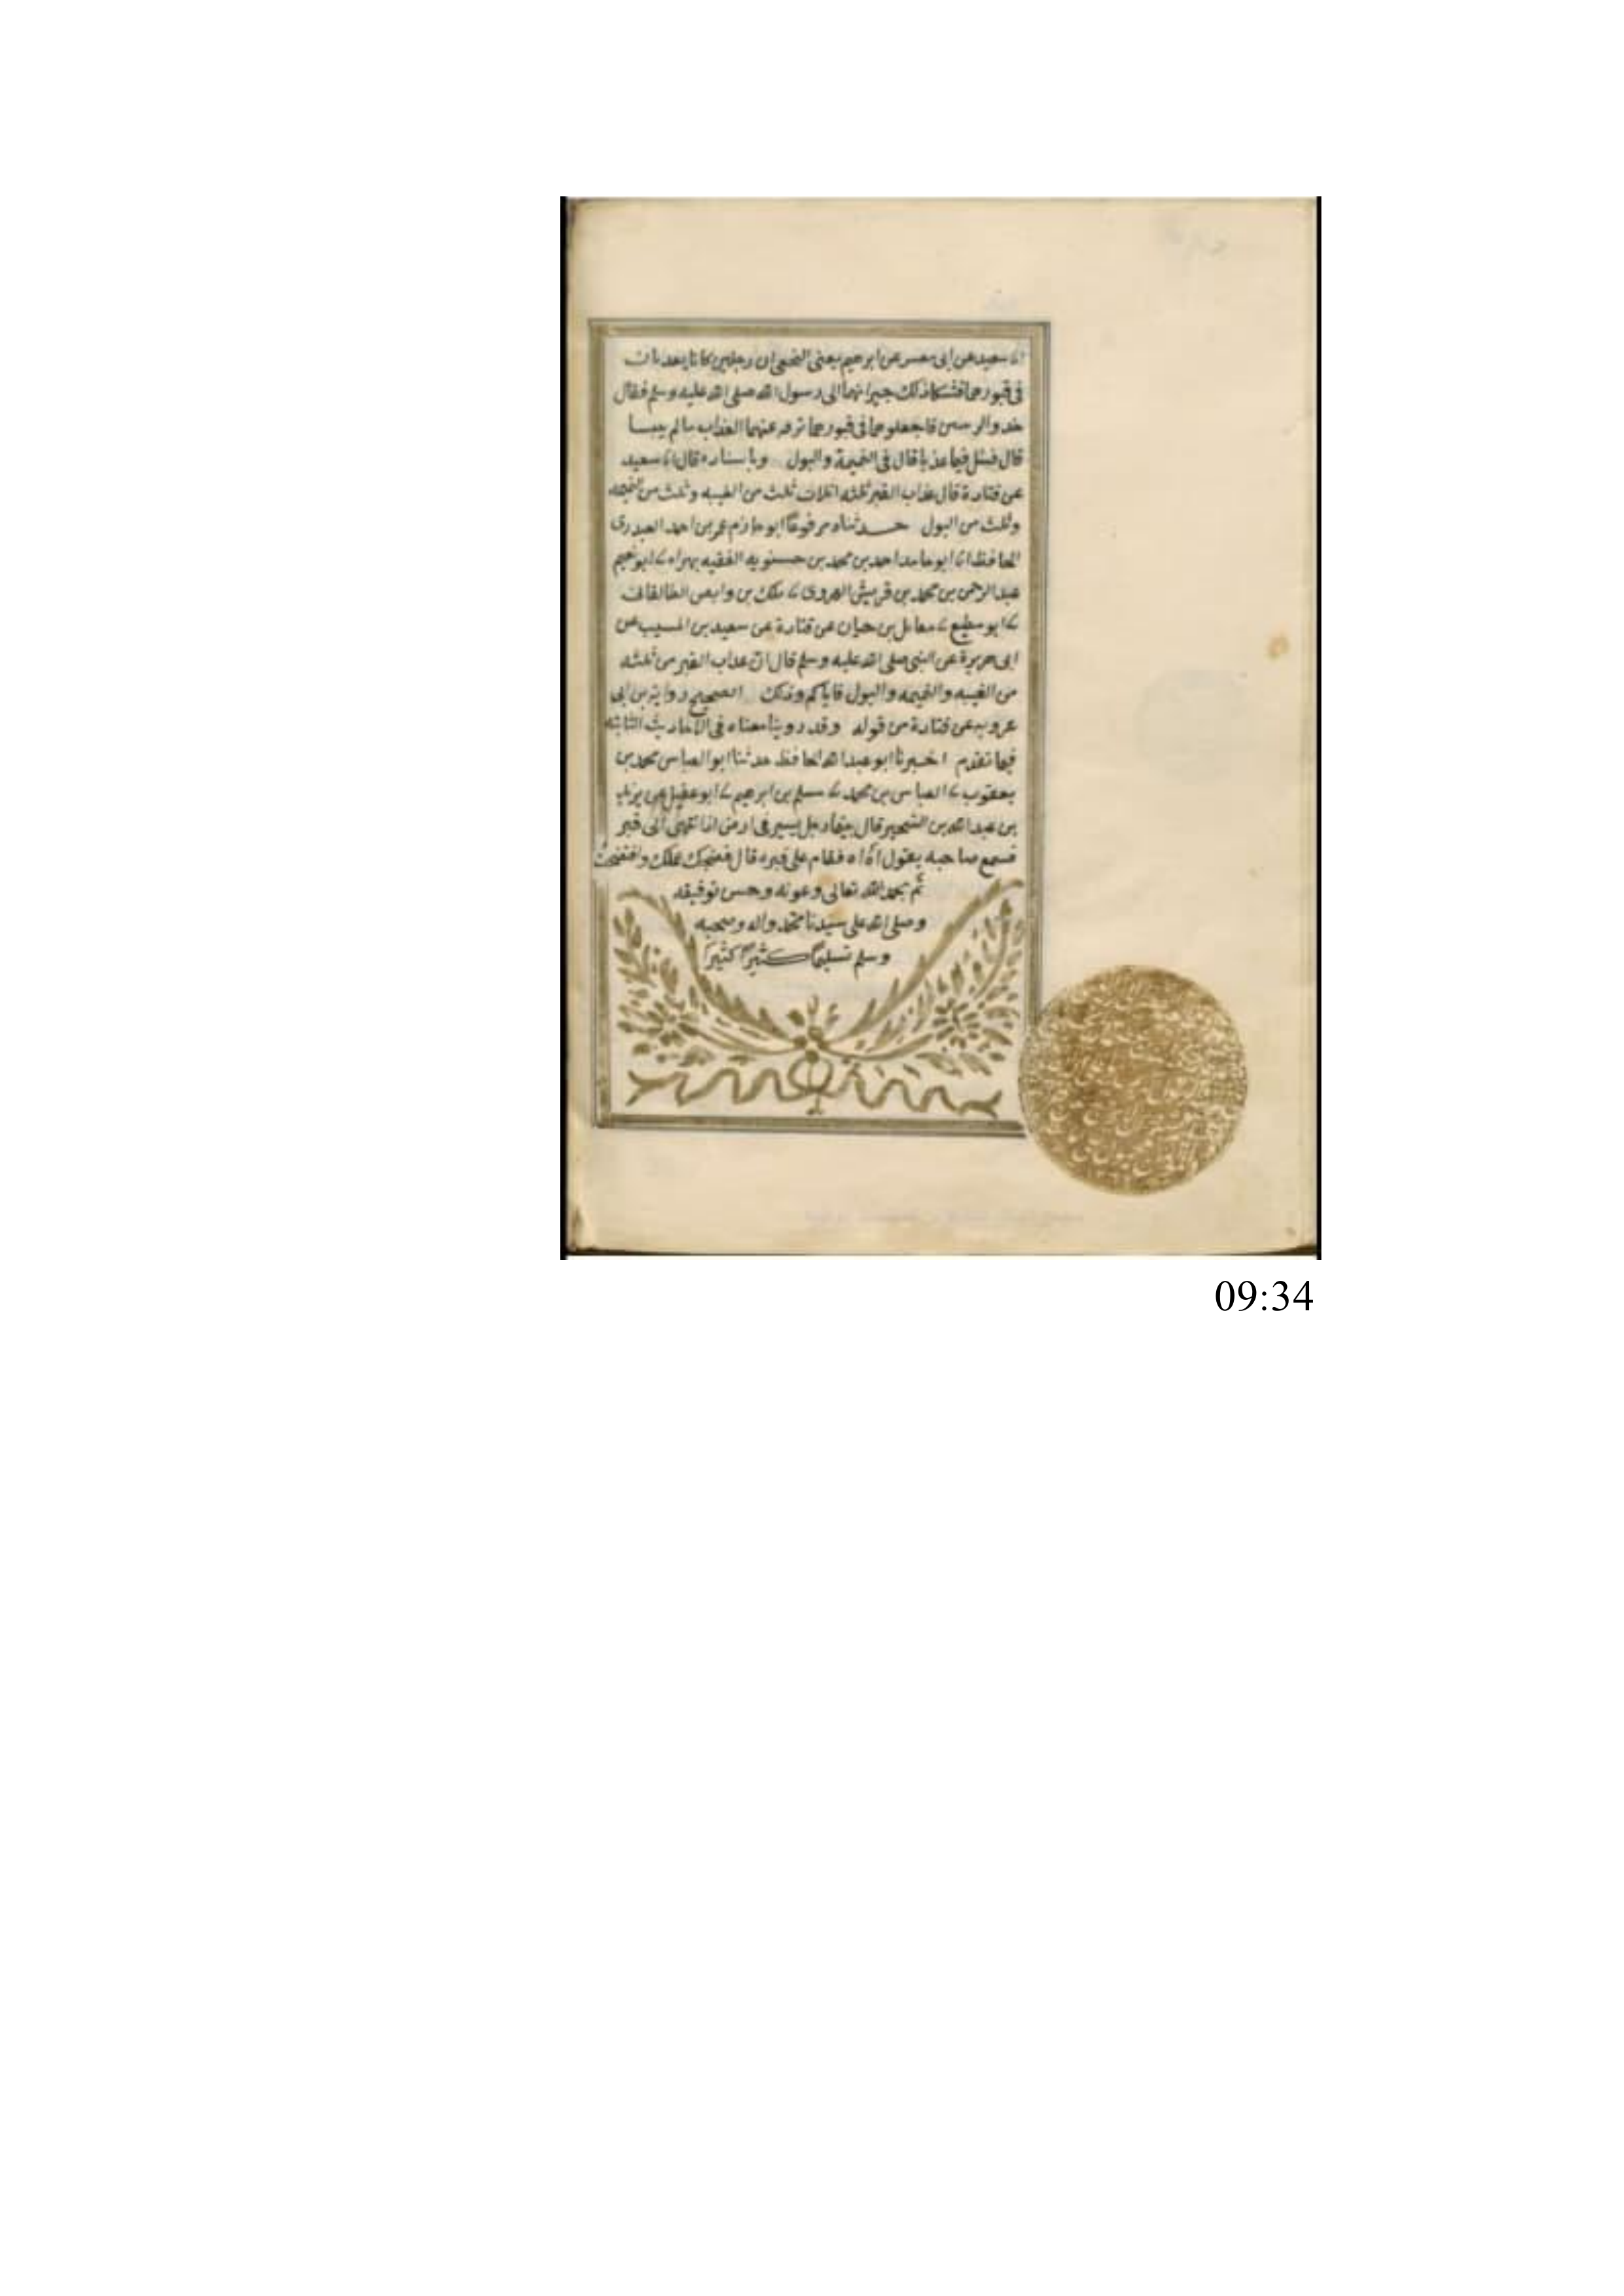 انا سعيد عن ابى معسر عن ابرهيم يعنى النخعى ان رجلين كانا يعذبان
فى قبورهما فشكا ذلك جيرانهما الى رسول الله صلى الله عليه وسلم فقال
خذوا فاجعلوهما فى قبورهما ترفه عنهما العذاب ما لم ييبسا
قال فسئل فيما عذبا قال فى النميمة والبول وباسناده قال انا سعيد
عن قتادة قال عذاب القبر ثلثه اثلاث ثلث من الغيبه وثلث من النميمه
وثلث من البول حدثناه مرفوعًا ابو حازم عمر بن احمد العبدرى
الحافظ انا ابو حامد احمد بن محمد بن حسنويه الفقيه بهراه
عبد الرحمن بن محمد بن قريش الهروى ملك بن وابص الطالقانى
ابو مطيع بن حيان عن قتادة عن سعيد بن المسيب عن
ابى هريرة عن النبى صلى الله عليه وسلم قال ان عذاب القبر من ثلثه
من الغيبه والنميمه والبول فاياكم وذلك الصحيح رواية بن ابى
عروبه عن قتادة من قوله وقد روينا معناه فى الاحاديث الثابته
فيما تقدم اخبرنا ابو عبد الله الحافظ حدثنا ابو العباس محمد بن
يعقوب العباس بن محمد مسلم بن ابرهيم ابو عقيل عن يزيد
بن عبد الله بن الشخير قال بينما رجل يسير فى ارض اذ انتهى الى قبر
فسمع صاحبه يقول اه اه فقام على قبره قال فضحك عملك وافتضحت
تم بحمد الله تعالى وعونه وحسن توفيقه
وصلى الله على سيدنا محمد واله وصحبه
وسلم تسليمًا كثيرًا كثيرًا
09:34